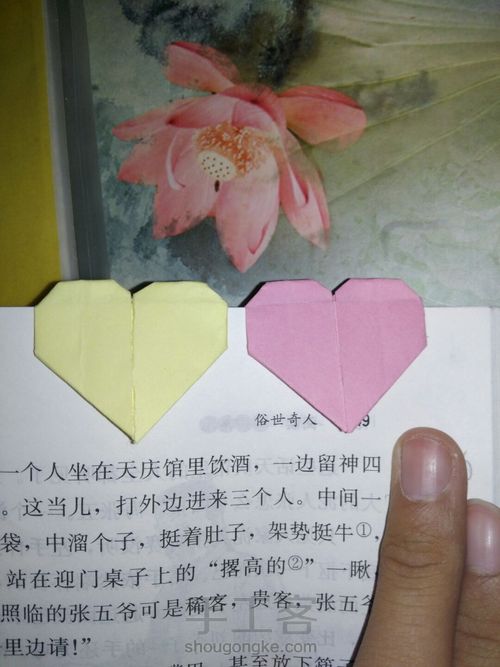 俗世奇人
9
一个人坐在天庆馆里饮酒，一边留神四
。这当儿，打外边进来三个人。中间一
袋，中溜个子，挺着肚子，架势挺牛①，
站在迎门桌子上的“撂高的②”一瞅，
照临的张五爷可是稀客，贵客，张五爷
里边请！”
手工客
shougongke.com
甚至放下筷